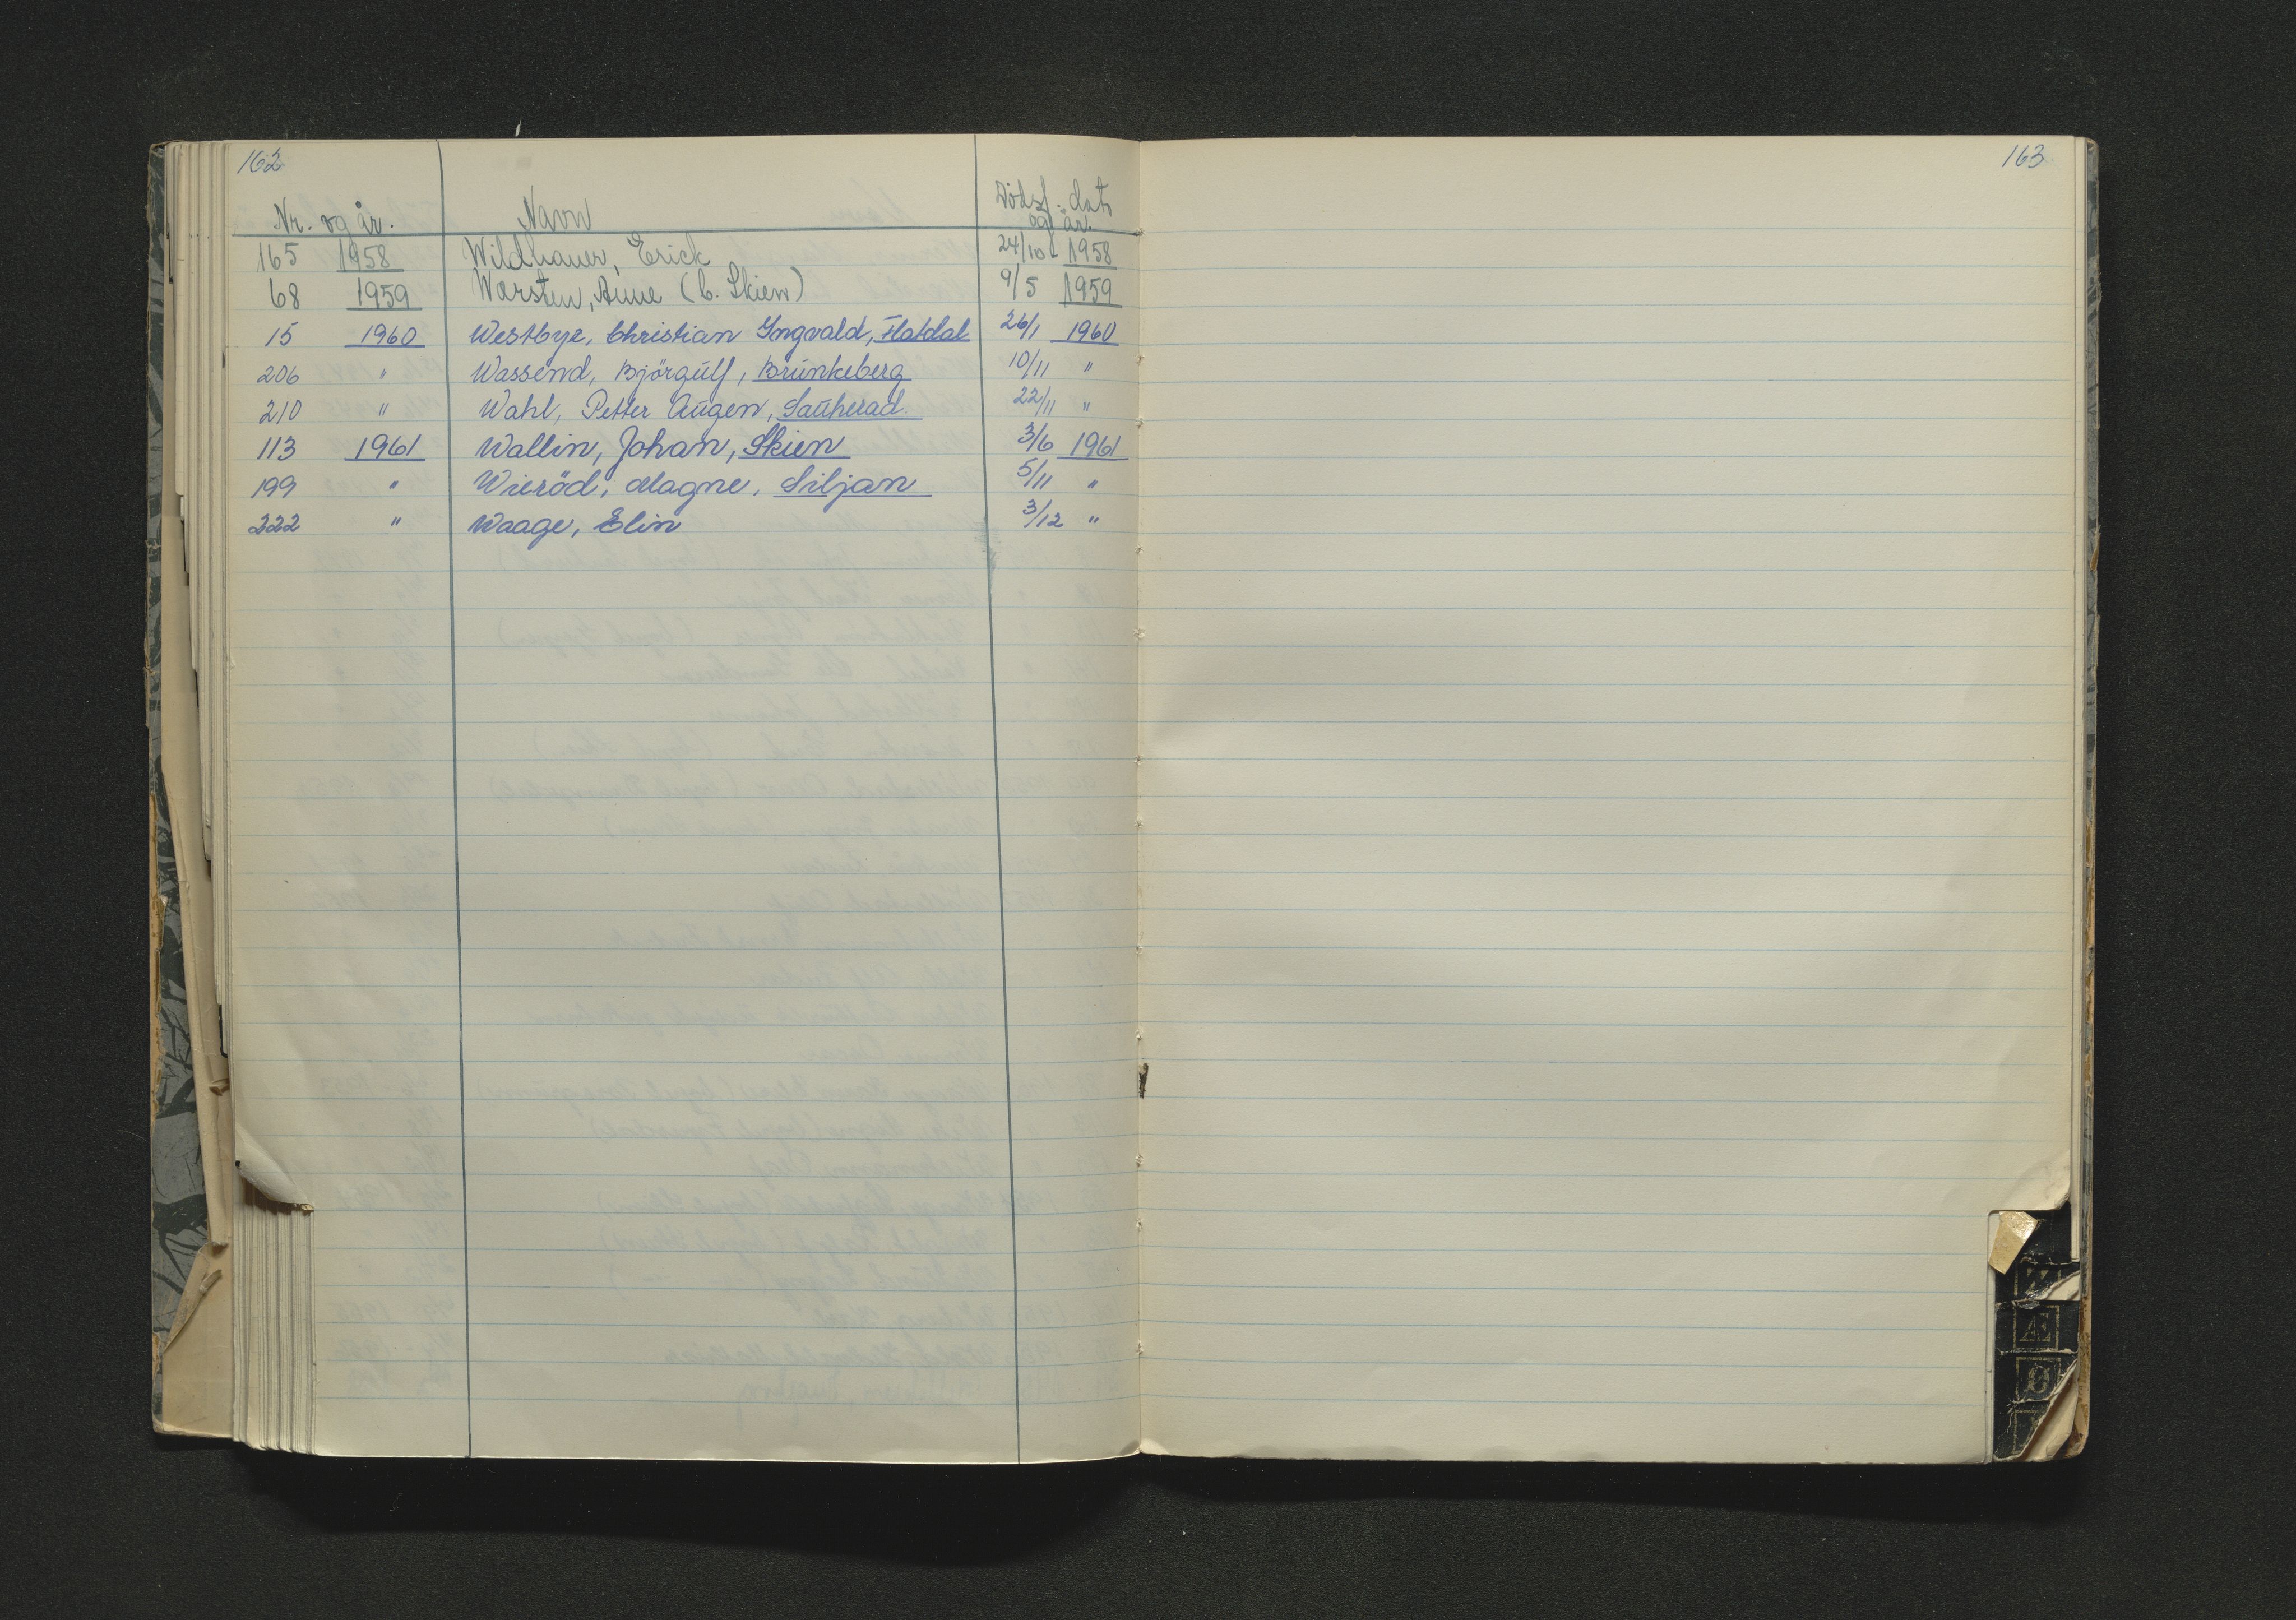 162
Nr. og år. Navn Dödsf. dato og år.
165 1958 Wildhauer, Erick 24/10 - 1958
68 1959 Wærsten, Anne (b. Skien) 9/5 1959
15 1960 Westbye, Christian Yngvald, Flatdal 26/1 1960
206 " Wassend, Björgulf, Brunkeberg 10/11 "
210 " Wahl, Petter Augen, Sauherad. 22/11 "
113 1961 Wallin, Johan, Skien 3/6 1961
199 " Wieröd, Magne, Siljan 5/11 "
222 " Waage, Elin 3/12 "
163
Æ
Ø